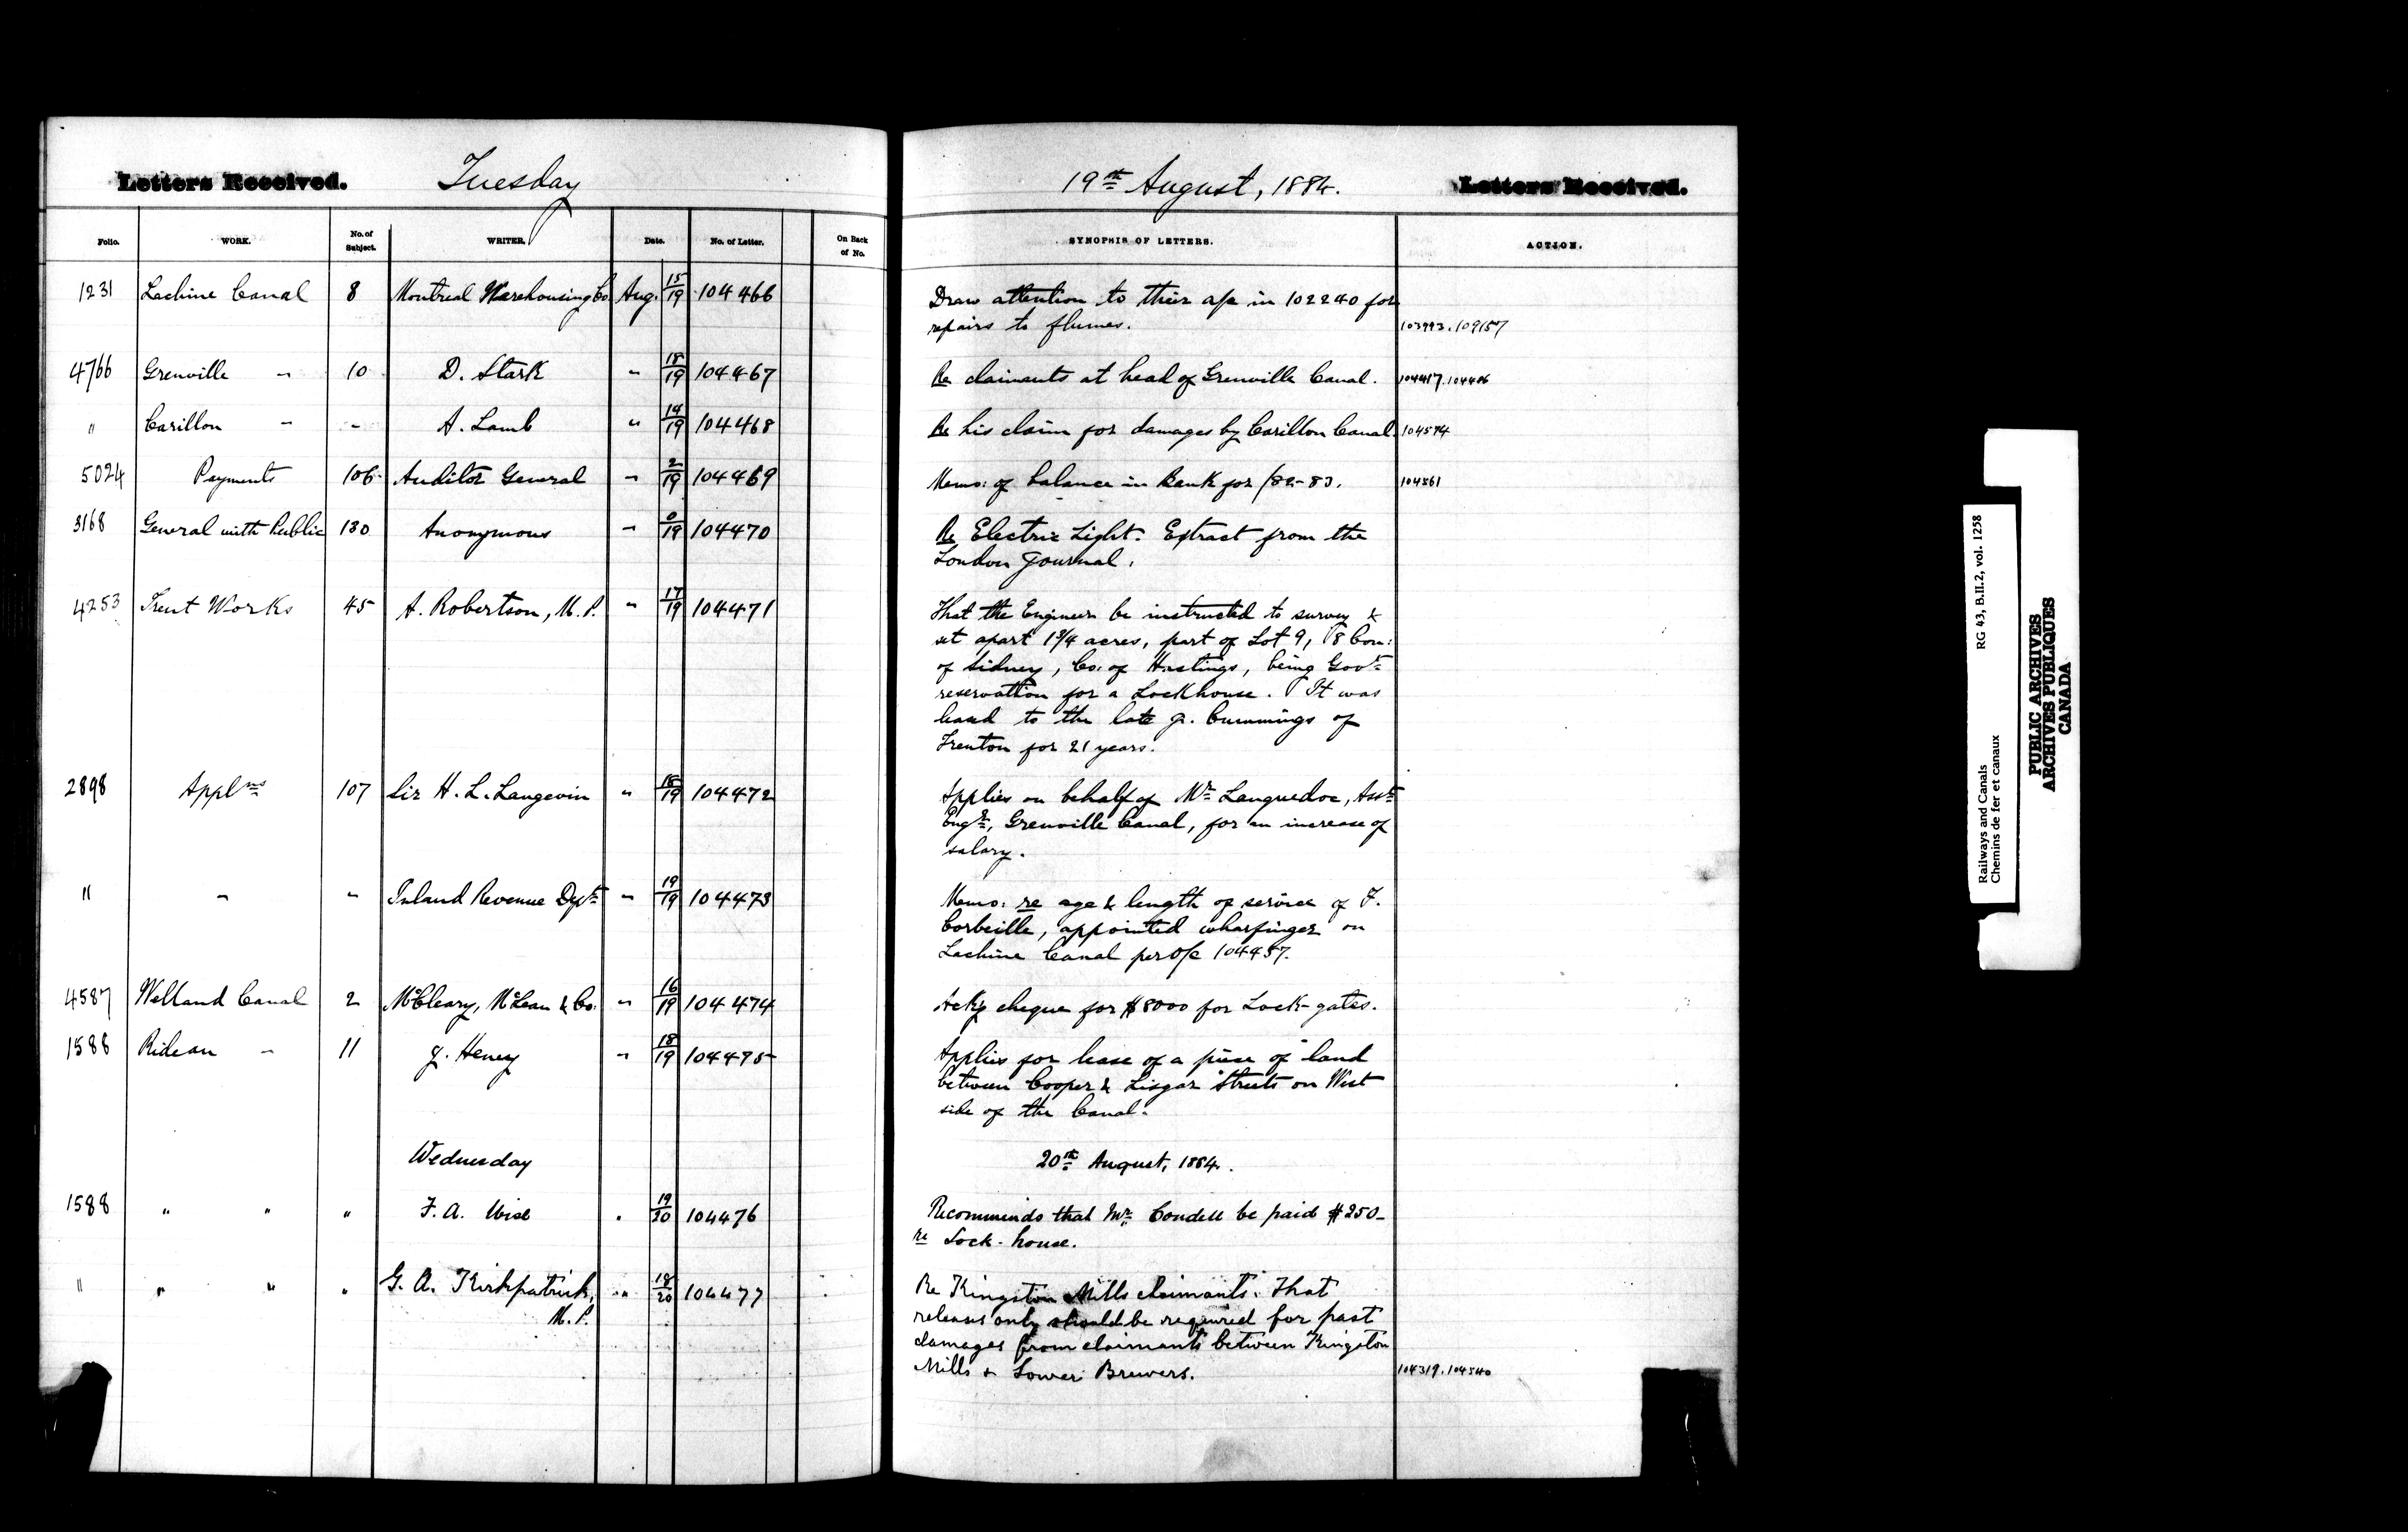 Letters Received. Tuesday 19th August, 1884. Letters Received.
Folio. WORK. No. of Subject. WRITER. Date. No. of Letter. On Back of No. SYNOPSIS OF LETTERS. ACTION.
1231 Lachine Canal 8 Montreal Warehousing Co. Aug. 15/19 104466 Draw attention to their a/c in 102240 for
repairs to flumes. 103993.109157
4766 Grenville " 10 D. Stark " 18/19 104467 Re claimants at head of Grenville Canal. 104417.104486
" Carillon " " A. Lamb " 14/19 104468 Re his claim for damages by Carillon Canal. 104574
5024 Payments 106 Auditor General " 2/19 104469 Memo: of balance in Bank for /82-83. 104561
3168 General with Public 130 Anonymous " 0/19 104470 Re Electric Light. Extract from the
London Journal.
4253 Trent Works 45 A. Robertson, M.P. " 17/19 104471 That the Engineer be instructed to survey &
set apart 1 3/4 acres, part of Lot 9, 8 Con:
of Sidney, Co. of Hastings, being Govt
reservation for a Lockhouse. It was
leased to the late J. Cummings of
Trenton for 21 years.
2898 Applns 107 Sir H. L. Langevin " 18/19 104472 Applies on behalf of Mr Languedoc, Asst
Engr, Grenville Canal, for an increase of
salary.
" " " Inland Revenue Dept " 19/19 104473 Memo: re age & length of service of F.
Corbeille, appointed wharfinger on
Lachine Canal per O/C 104457.
4587 Welland Canal 2 McCleary, McLean & Co. " 16/19 104474 Ackg cheque for $8000 for Lock-gates.
1588 Rideau " 11 J. Heney " 18/19 104475 Applies for lease of a piece of land
between Cooper & Lisgar Streets on West
side of the Canal.
Wednesday 20th August, 1884.
1588 " " " F. A. Wise " 19/20 104476 Recommends that Mr. Condell be paid $250-
re Lock-house.
" " " " G. A. Kirkpatrick, " 18/20 104477 Re Kingston Mills claimants. That
M.P. releases only should be required for past
damages from claimants between Kingston
Mills & Lower Brewers. 104319.104540
Railways and Canals RG 43, B.II.2, vol. 1258
Chemins de fer et canaux
PUBLIC ARCHIVES
ARCHIVES PUBLIQUES
CANADA